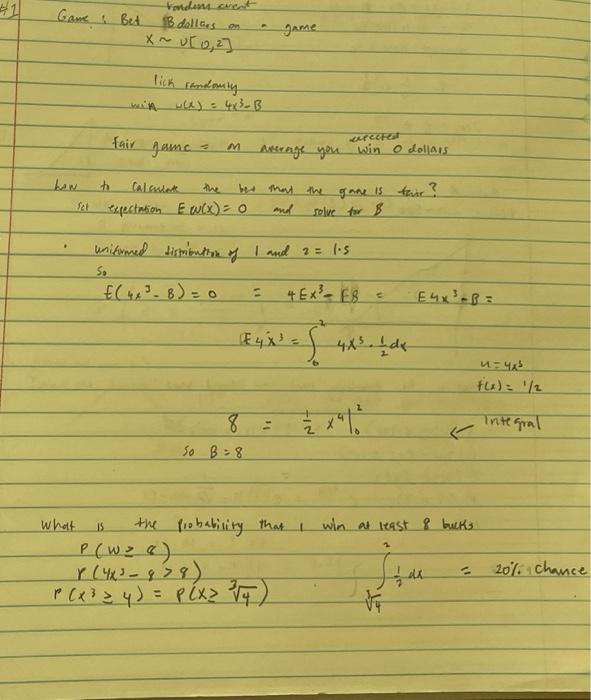 #1
random event
Game : Bet B dollars on a game
X ~ U[0,2]
Pick randomly
win w(x) = 4x³-B
expected
fair game = on average you win 0 dollars
how to calculate the bet that the game is fair?
set expectation E w(x) = 0 and solve for B
• uniformed distribution of 1 and 2 = 1.5
So
E(4x³-B) = 0 = 4Ex³ - EB = E4x³-B =
E4x³ = ∫₀² 4x³ · 1/2 dx
u = 4x³
f(x) = 1/2
8 = 1/2 x⁴|₀² ← Integral
So B = 8
What is the probability that I win at least 8 bucks
P(W ≥ 8)
P(4x³ - 8 > 8)
P(x³ ≥ 4) = P(X ≥ ∛4) ∫_∛4^2 1/2 dx = 20% chance